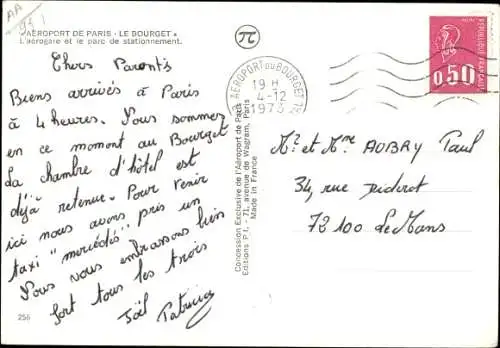 AA
95 1
"AÉROPORT DE PARIS - LE BOURGET"
L'aérogare et le parc de stationnement.
Chers Parents
Biens arrivés à Paris
à 4 heures. Nous sommes
en ce moment au Bourget
La chambre d'hôtel est
déjà retenue. Pour venir
ici nous avons pris un
taxi "mercédès".
Nous vous embrassons bien
fort tous les trois
Joël Patricia
256
Concession Exclusive de l'Aéroport de Paris
Editions P.I. - 71, avenue de Wagram, Paris
Made in France
AÉROPORT DU BOURGET
19 H
4-12
1973
RÉPUBLIQUE FRANÇAISE
0,50
Mr et Mme AUBRY Paul
34, rue Diderot
72100 Le Mans